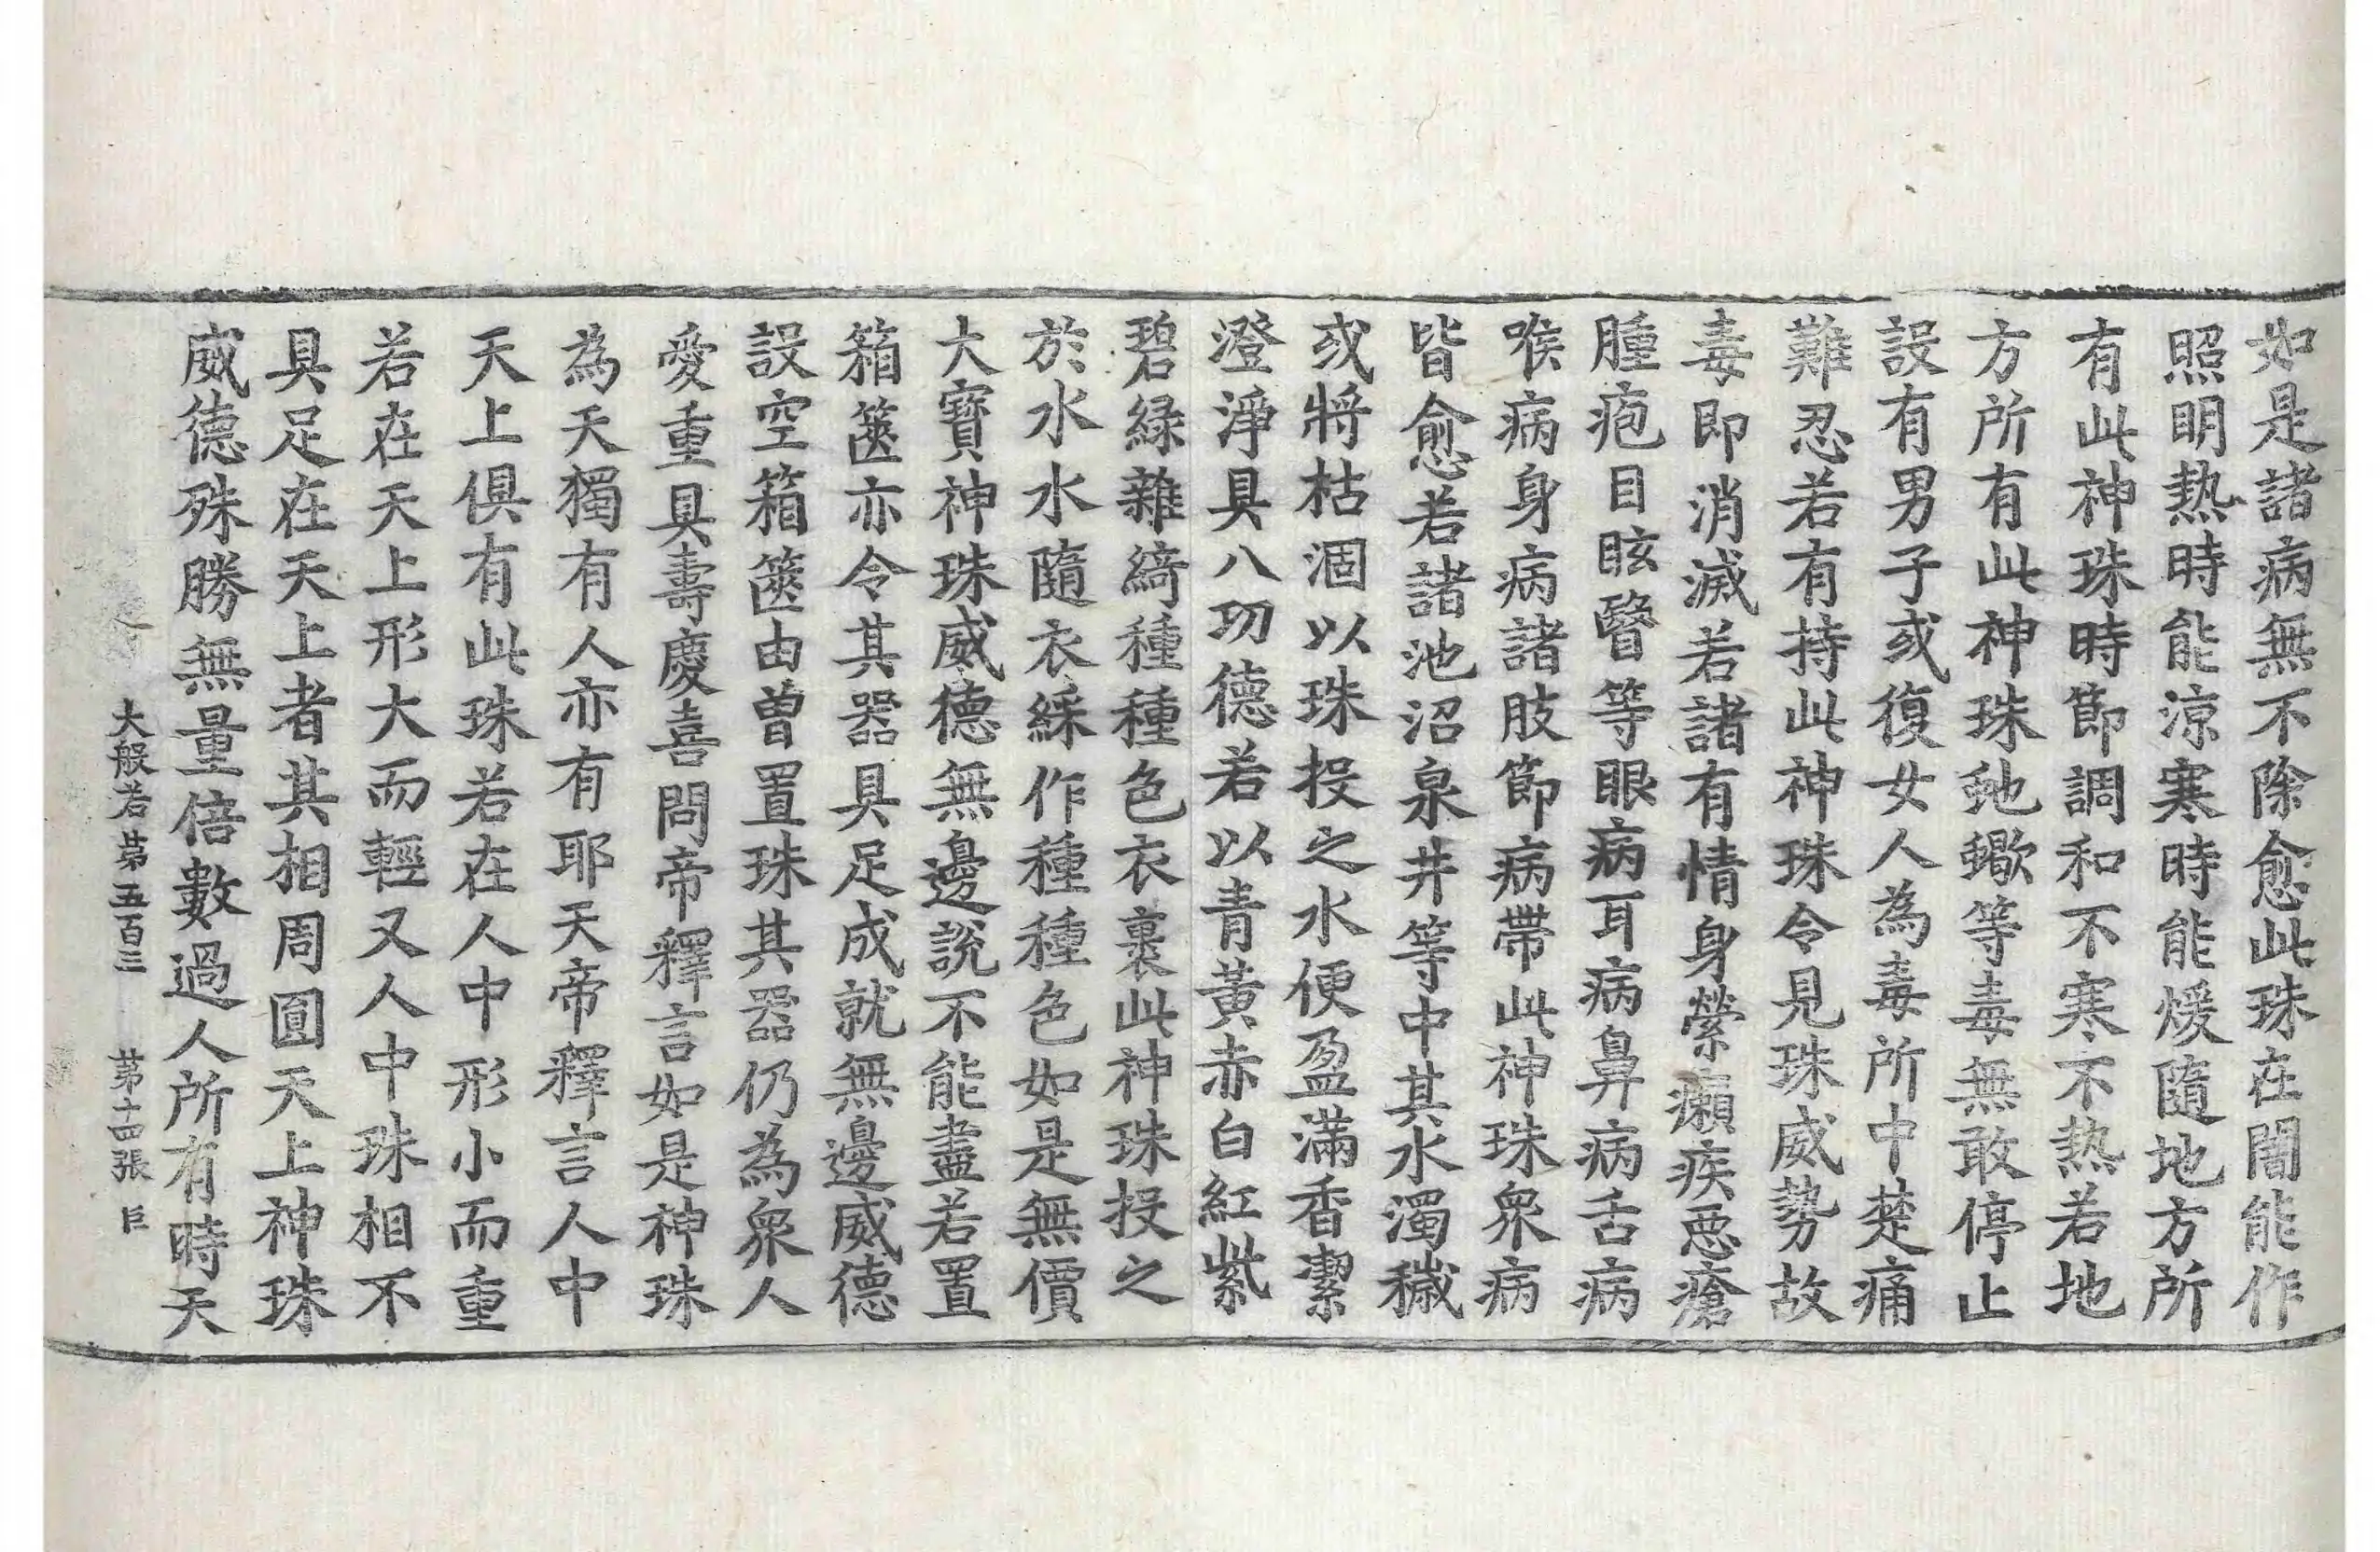 如是諸病無不除愈此珠在闇能作
照明熱時能涼寒時能煖隨地方所
有此神珠時節調和不寒不熱若地
方所有此神珠虵蠍等毒無敢停止
設有男子或復女人為毒所中楚痛
難忍若有持此神珠令見珠威勢故
毒即消滅若諸有情身縈癩疾惡瘡
腫疱目眩瞖等眼病耳病鼻病舌病
喉病身病諸肢節病帶此神珠眾病
皆愈若諸池沼泉井等中其水濁穢
或將枯涸以珠投之水便盈滿香潔
澄淨具八功德若以青黃赤白紅紫
碧綠雜綺種種色衣裹此神珠投之
於水水隨衣綵作種種色如是無價
大寶神珠威德無邊說不能盡若置
箱篋亦令其器具足成就無邊威德
設空箱篋由曾置珠其器仍為眾人
愛重具壽慶喜問帝釋言如是神珠
為天獨有人亦有耶天帝釋言人中
天上俱有此珠若在人中形小而重
若在天上形大而輕又人中珠相不
具足在天上者其相周圓天上神珠
威德殊勝無量倍數過人所有時天
大般若第五百三 第十四張 巨